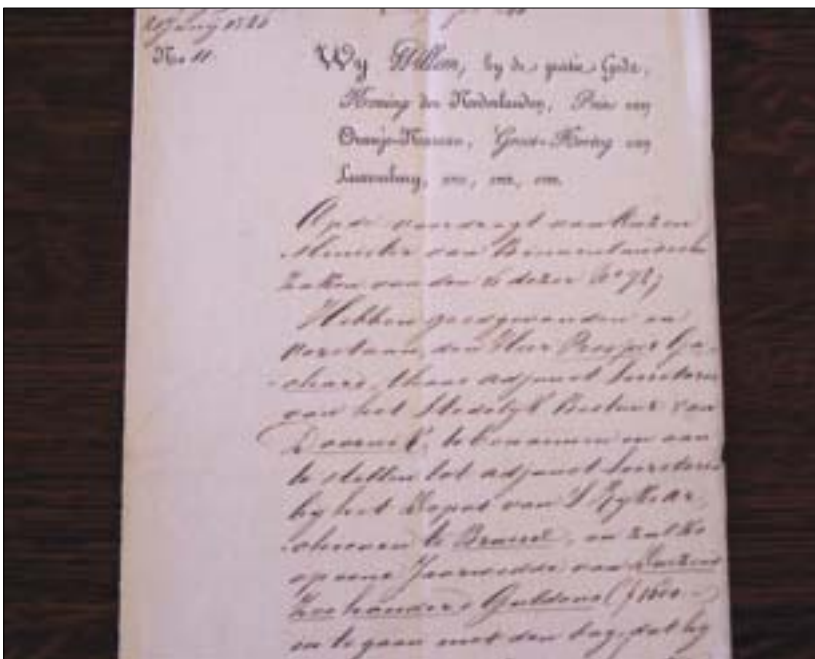 No 11.
Wy Willem, by de gratie Gods,
Koning der Nederlanden, Prins van
Oranje-Nassau, Groot-Hertog van
Luxemburg, enz., enz., enz.
Op de voordragt van Onzen
Minister van Binnenlandsche
Zaken van den 16 dezer No 72;
Hebben goedgevonden en
verstaan, den Heer Prosper Ga-
chard, thans adjunct Secretaris
van het Stedelyk Bestuur van
Doornik, te benoemen en aan
te stellen tot adjunct Secretaris
by het Depot van 's Ryks ar-
chieven te Brussel, en zulks
op eene Jaarwedde van Duizend
Zeshonderd Guldens (f 1600.-)
in te gaan met den dag, dat hy